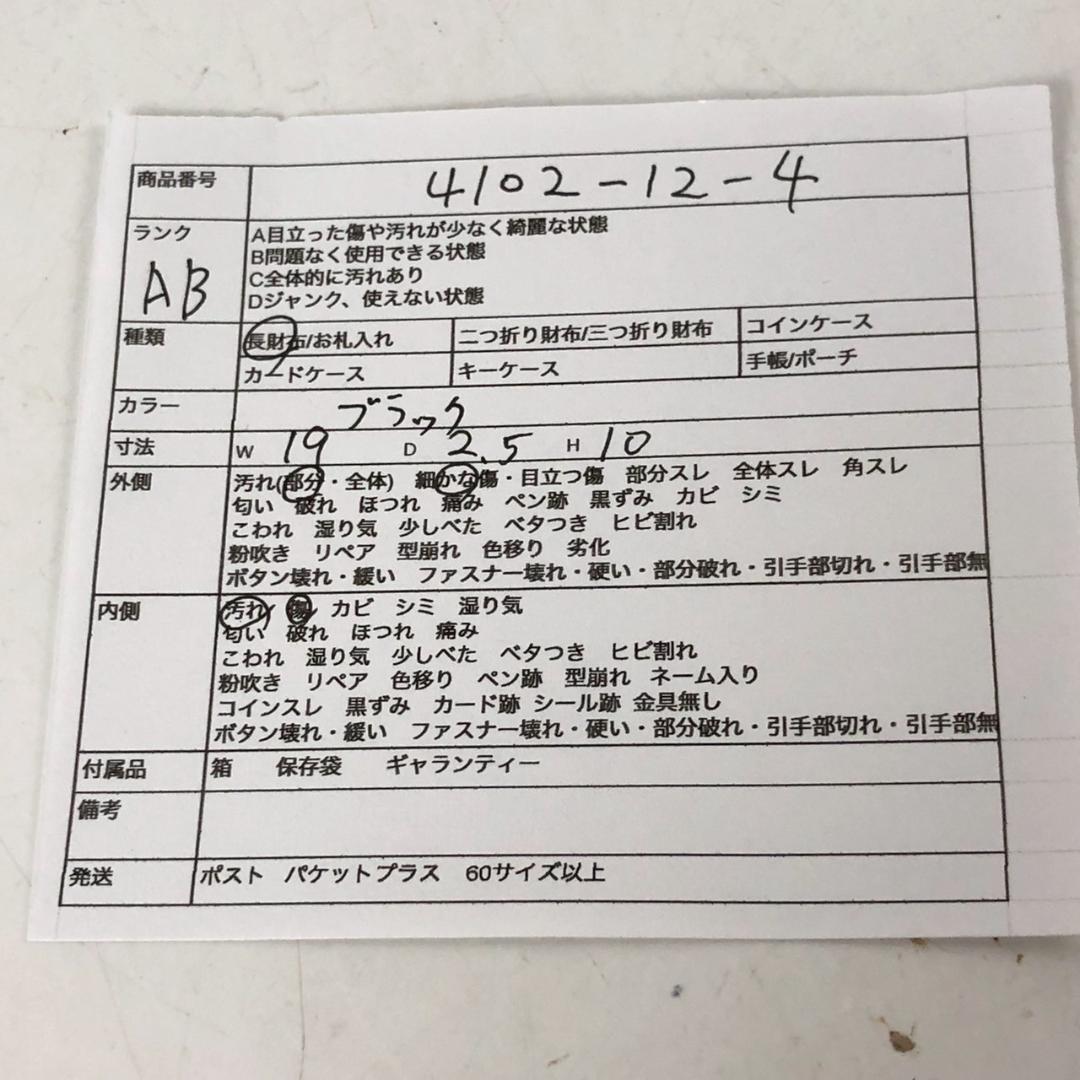 商品番号 4102-12-4
ランク AB
A目立った傷や汚れが少なく綺麗な状態
B問題なく使用できる状態
C全体的に汚れあり
Dジャンク、使えない状態
種類 長財布/お札入れ 二つ折り財布/三つ折り財布 コインケース
カードケース キーケース 手帳/ポーチ
カラー ブラック
寸法 W 19 D 2.5 H 10
外側 汚れ(部分・全体) 細かな傷・目立つ傷 部分スレ 全体スレ 角スレ
匂い 破れ ほつれ 痛み ペン跡 黒ずみ カビ シミ
こわれ 湿り気 少しべた ベタつき ヒビ割れ
粉吹き リペア 型崩れ 色移り 劣化
ボタン壊れ・緩い ファスナー壊れ・硬い・部分破れ・引手部切れ・引手部無
内側 汚れ 傷 カビ シミ 湿り気
匂い 破れ ほつれ 痛み
こわれ 湿り気 少しべた ベタつき ヒビ割れ
粉吹き リペア 色移り ペン跡 型崩れ ネーム入り
コインスレ 黒ずみ カード跡 シール跡 金具無し
ボタン壊れ・緩い ファスナー壊れ・硬い・部分破れ・引手部切れ・引手部無
付属品 箱 保存袋 ギャランティー
備考
発送 ポスト パケットプラス 60サイズ以上